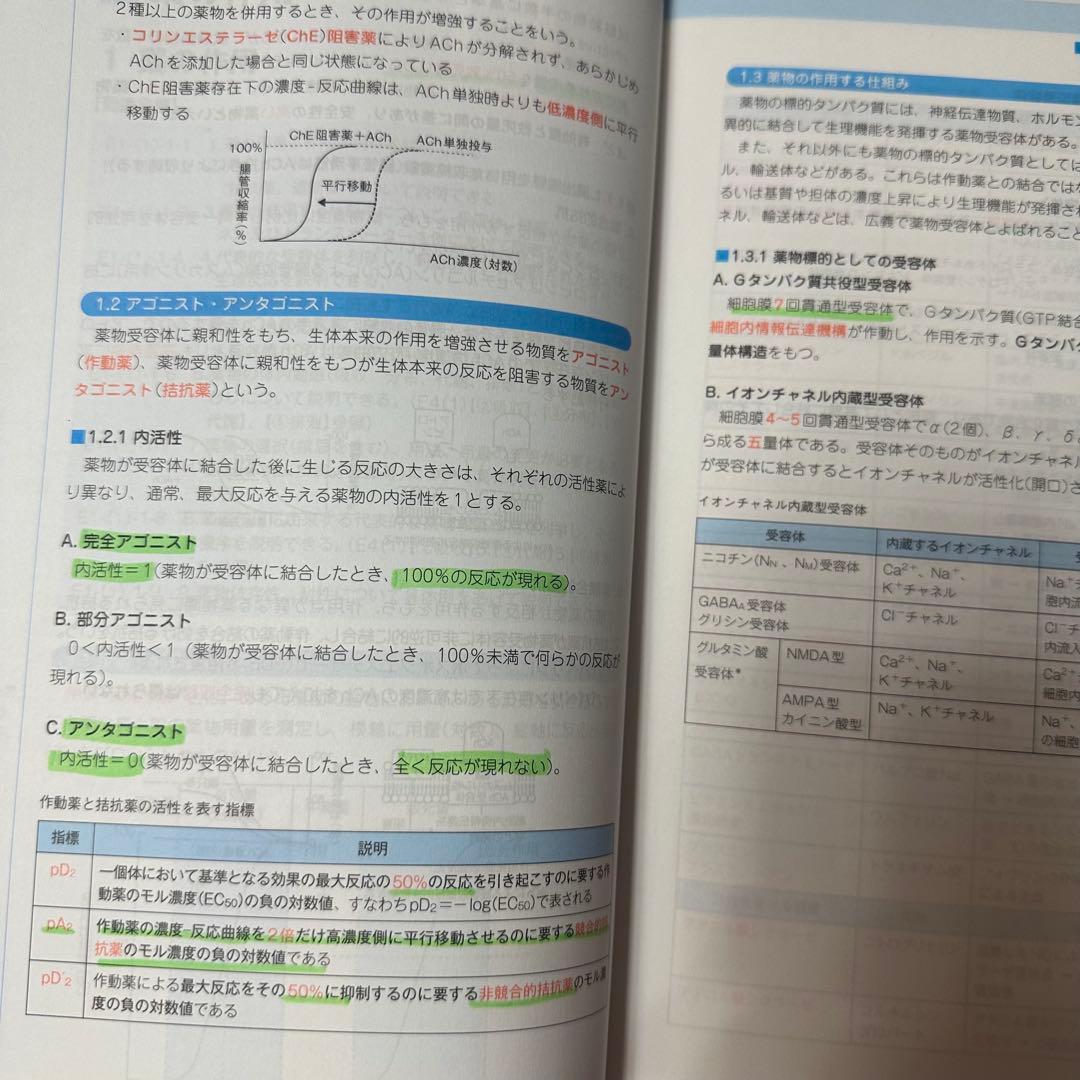 2種以上の薬物を併用するとき、その作用が増強することをいう。
・コリンエステラーゼ(ChE)阻害薬によりAChが分解されず、あらかじめ
AChを添加した場合と同じ状態になっている
・ChE阻害薬存在下の濃度-反応曲線は、ACh単独時よりも低濃度側に平行
移動する
ChE阻害薬+ACh
ACh単独投与
100%
腸管収縮率(%)
平行移動
ACh濃度(対数)
1.2 アゴニスト・アンタゴニスト
薬物受容体に親和性をもち、生体本来の作用を増強させる物質をアゴニスト
(作動薬)、薬物受容体に親和性をもつが生体本来の反応を阻害する物質をアン
タゴニスト(拮抗薬)という。
1.2.1 内活性
薬物が受容体に結合した後に生じる反応の大きさは、それぞれの活性薬によ
り異なり、通常、最大反応を与える薬物の内活性を1とする。
A. 完全アゴニスト
内活性=1(薬物が受容体に結合したとき、100%の反応が現れる)。
B. 部分アゴニスト
0<内活性<1(薬物が受容体に結合したとき、100%未満で何らかの反応が
現れる)。
C. アンタゴニスト
内活性=0(薬物が受容体に結合したとき、全く反応が現れない)。
作動薬と拮抗薬の活性を表す指標
指標 説明
pD₂ 一個体において基準となる効果の最大反応の50%の反応を引き起こすのに要する作
動薬のモル濃度(EC₅₀)の負の対数値、すなわちpD₂=-log(EC₅₀)で表される
pA₂ 作動薬の濃度-反応曲線を2倍だけ高濃度側に平行移動させるのに要する競合的拮
抗薬のモル濃度の負の対数値である
pD'₂ 作動薬による最大反応をその50%に抑制するのに要する非競合的拮抗薬のモル濃
度の負の対数値である
1.3 薬物の作用する仕組み
薬物の標的タンパク質には、神経伝達物質、ホルモン
異的に結合して生理機能を発揮する薬物受容体がある。
また、それ以外にも薬物の標的タンパク質としては
ル、輸送体などがある。これらは作動薬との結合ではな
るいは基質や担体の濃度上昇により生理機能が発揮され
ネル、輸送体などは、広義で薬物受容体とよばれること
1.3.1 薬物標的としての受容体
A. Gタンパク質共役型受容体
細胞膜7回貫通型受容体で、Gタンパク質(GTP結合
細胞内情報伝達機構が作動し、作用を示す。Gタンパク
量体構造をもつ。
B. イオンチャネル内蔵型受容体
細胞膜4〜5回貫通型受容体でα(2個)、β、γ、δ
ら成る五量体である。受容体そのものがイオンチャネル
が受容体に結合するとイオンチャネルが活性化(開口)さ
イオンチャネル内蔵型受容体
受容体 内蔵するイオンチャネル
ニコチン(N_N、N_M)受容体 Ca²⁺、Na⁺、
K⁺チャネル
Na⁺チ
胞内流
GABA_A受容体
グリシン受容体
Cl⁻チャネル
Cl⁻チ
内流入
グルタミン酸
受容体*
NMDA型
Ca²⁺、Na⁺、
K⁺チャネル
Ca²⁺
細胞内
AMPA型
カイニン酸型
Na⁺、K⁺チャネル
Na⁺、
の細胞